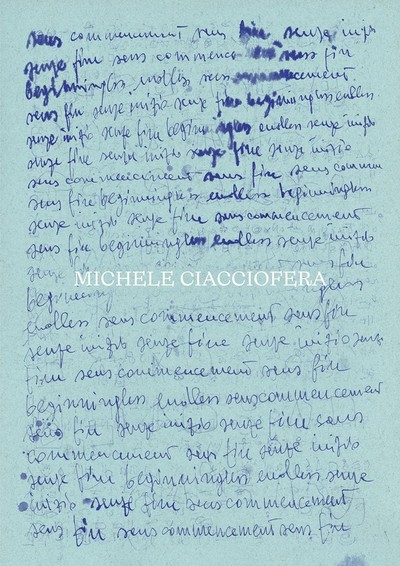 sens commencement sens fin senza inizio
senza fine sens commence sens fin
beginningless endless sens commencement
sens fin senza inizio senza fine beginningless endless
senza inizio senza fine beginningless endless senza inizio
senza fine senza inizio senza fine senza inizio
sens commencement sens fin sens commen
sens fin beginningless endless beginningless
senza inizio senza fine sens commencement
sens fin beginningless endless senza inizio
senza fin
MICHELE CIACCIOFERA
beginning sens
endless sens commencement sens fin
senza inizio senza fine senza inizio senza
fine sens commencement sens fin
beginningless endless sens commencement
sens fin senza inizio senza fine sans
commencement sens fin senza inizio
senza fine beginningless endless senza
inizio senza fine sens commencement
sens fin sens commencement sens fin